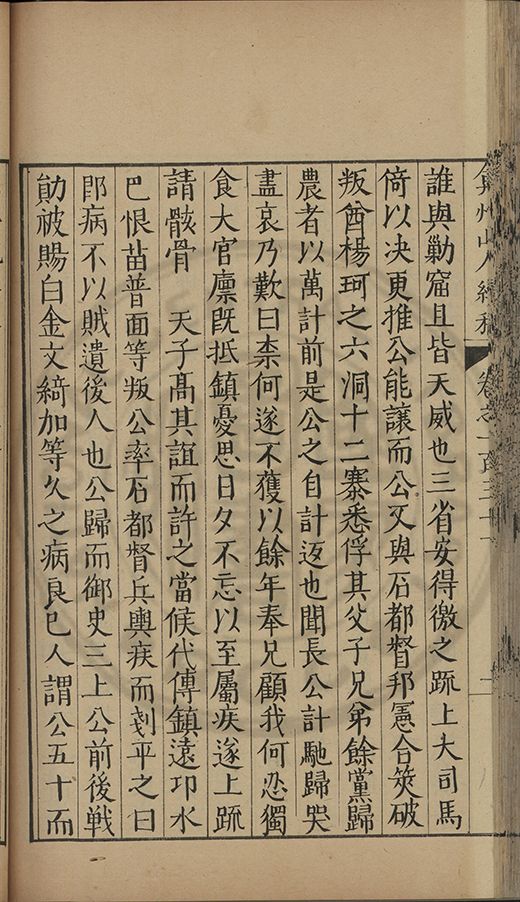 弇州山人續稿 卷之一百三十一
誰與勦窟且皆天威也三省安得徼之䟽上大司馬
倚以决更推公能讓而公又與石都督邦憲合筴破
叛酋楊珂之六洞十二寨悉俘其父子兄弟餘黨歸
農者以萬計前是公之自計返也聞長公訃馳歸哭
盡哀乃歎曰柰何遂不獲以餘年奉兄顧我何忍獨
食大官廪旣抵鎮憂思日夕不忘以至屬疾遂上䟽
請骸骨 天子髙其誼而許之當候代傳鎮遠卭水
巴恨苗普面等叛公率石都督兵輿疾而剗平之曰
即病不以賊遺後人也公歸而御史三上公前後戦
勛被賜白金文綺加等久之病良已人謂公五十而